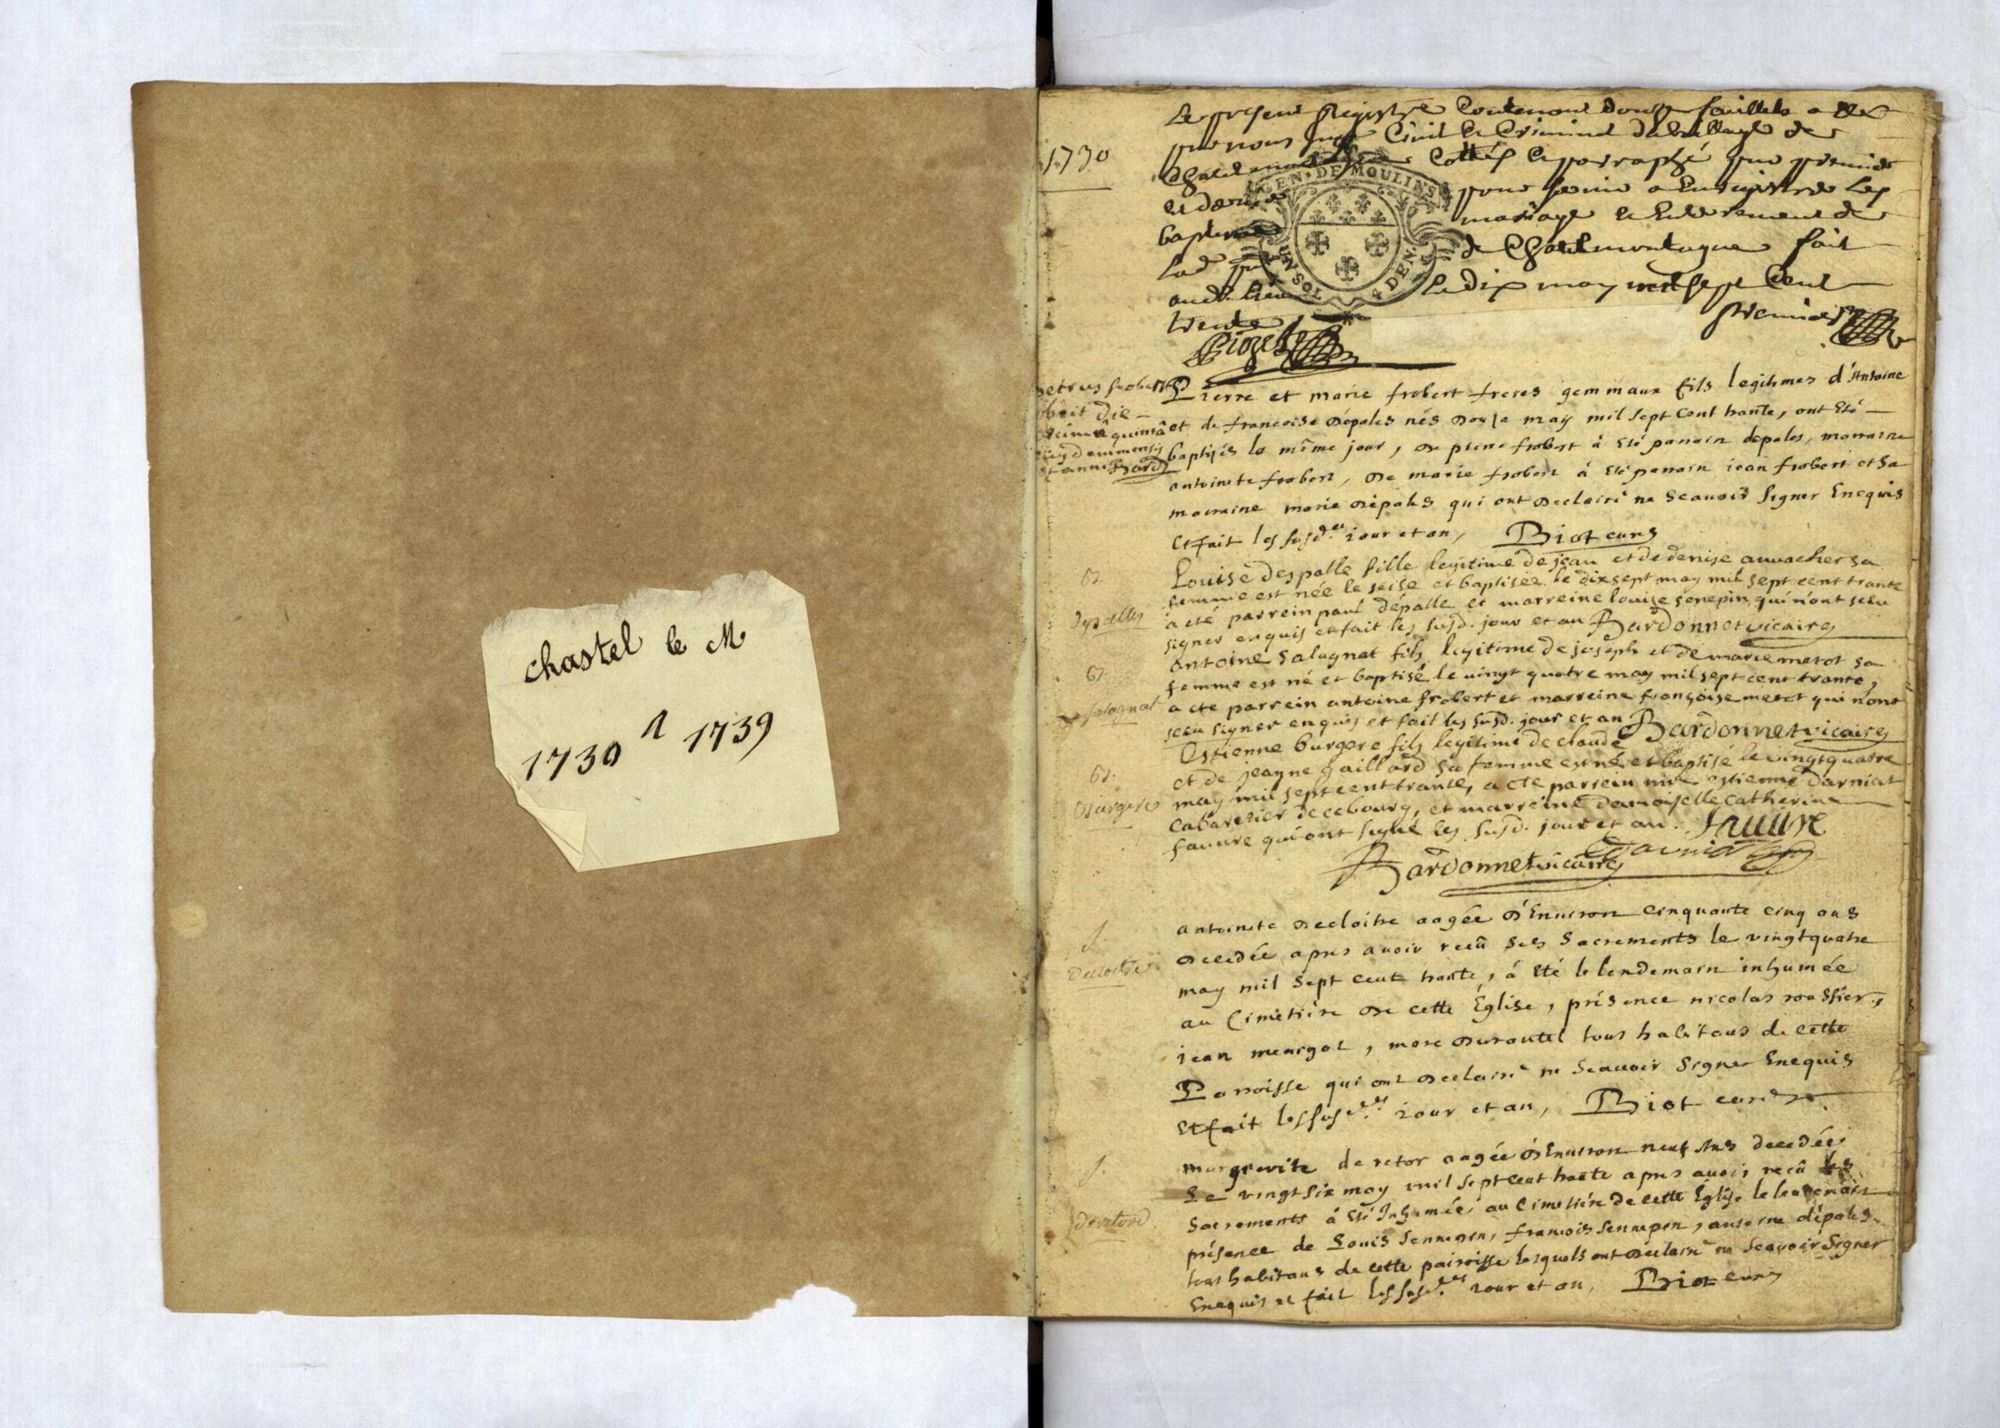 chastel le M
1730 A 1739
1730
Le present Registre Contenant douze feuillets a été
par nous Juge Civil et Criminel du baillage de
Chatelmontagne Cotté et paraphé par premier
et dernier pour servir a Enregistrer les
baptemes mariage et Enterrement de
la de Chatelmontagne fait
aud. lieu le dix may mil sept Cent
trente
premier
GEN. DE MOULINS
UN SOL 4 DEN.
Petrus frobert
obiit die
Pierre et marie frobert freres gemmaux fils legitimes d'Antoine
et de francoise Dépales nés Douze may mil sept Cent trante, ont été
baptisés le même jour, De pierre frobert à été parrain depales, marraine
antoinete frobert, De marie frobert à été parrain jean frobert et sa
marraine marie Dépales qui ont Declairé ne Scavoir signer Enequis
Et fait les susd.es jour et an, Biot curé
B.
Dépalles
Louise Despalle fille legitime de jean et de denise auvacher sa
femme est née le seise et baptisée le dixsept may mil sept cent trante
à été parrein paul dépalle et marreine louize senepin qui n'ont sceu
signer enquis et fait les susd. jour et an Bardonnet vicaire
B.
Salagnat
Antoine Salagnat fils legitime de joseph et de marie meret sa
femme est né et baptisé le vingt quatre may mil sept cent trante,
a été parrein antoine frobert et marreine françoise meret qui n'ont
sceu signer enquis et fait les susd. jour et an Bardonnet vicaire
B.
Burgere
Estienne burgere fils legitime de claude
et de jeanne gaillard sa femme est né et baptisé le vingt quatre
may mil sept cent trante, a été parrein me estienne darniat
cabaretier de ce bourg, et marreine damoiselle catherine
fauure qui ont signé les susd. jour et an. fauure
Bardonnet vicaire
S.
Decloitre
antoinete Decloitre aagée D'Enuiron cinquante cinq ans
Decedée apres avoir recû Ses Sacrements le vingtquatre
may mil Sept cent trante, à été le lendemain inhumée
au Cimetière De cette Église, présence nicolas roussier,
jean meargot, marc Durantel tous habitans de cette
Paroisse qui ont Declairé ne Scavoir Signer Enequis
Et fait les susd.es jour et an, Biot curé
S.
marguerite de retor aagée D'Enuiron neuf Ans Decedée
Le vingt six may mil sept cent trante apres avoir recû Ses
Sacrements à été Inhumée au Cimetière de cette Église le lendemain
présence de Louis Sennepin, francois Sennepin, antoine dépales
tous habitans de cette paroisse lesquels ont Declairé ne Scavoir Signer
Enequis et fait les susd.es jour et an, Biot curé